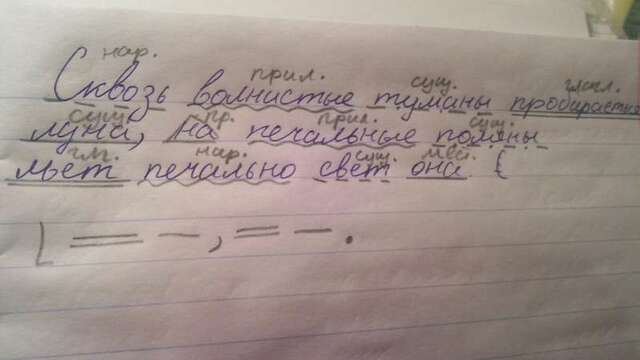 нар. прил. сущ. глагл.
Сквозь волнистые туманы пробирается
сущ. пр. прил. сущ.
луна, на печальные поляны
гл. нар. сущ. мес.
льет печально свет она. (
[ == –, == –.